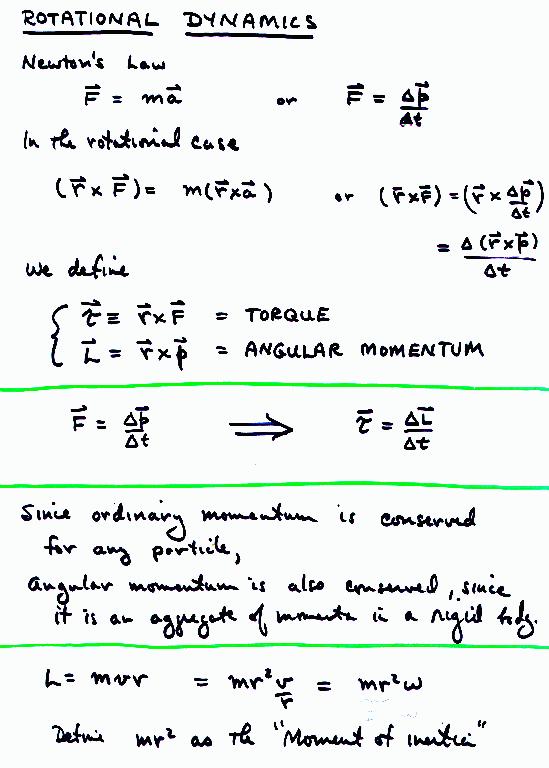 ROTATIONAL DYNAMICS
Newton's Law
F⃗ = ma⃗ or F⃗ = Δp⃗/Δt
In the rotational case
(r⃗ × F⃗) = m(r⃗×a⃗) or (r⃗×F⃗) = (r⃗ × Δp⃗/Δt)
= Δ(r⃗×p⃗)/Δt
We define
{ τ⃗ ≡ r⃗×F⃗ = TORQUE
L⃗ = r⃗×p⃗ = ANGULAR MOMENTUM
F⃗ = Δp⃗/Δt ⟹ τ⃗ = ΔL⃗/Δt
Since ordinary momentum is conserved
for any particle,
angular momentum is also conserved, since
it is an aggregate of momenta in a rigid body.
L = mvr = mr² v/r = mr²ω
Define mr² as the "Moment of inertia"